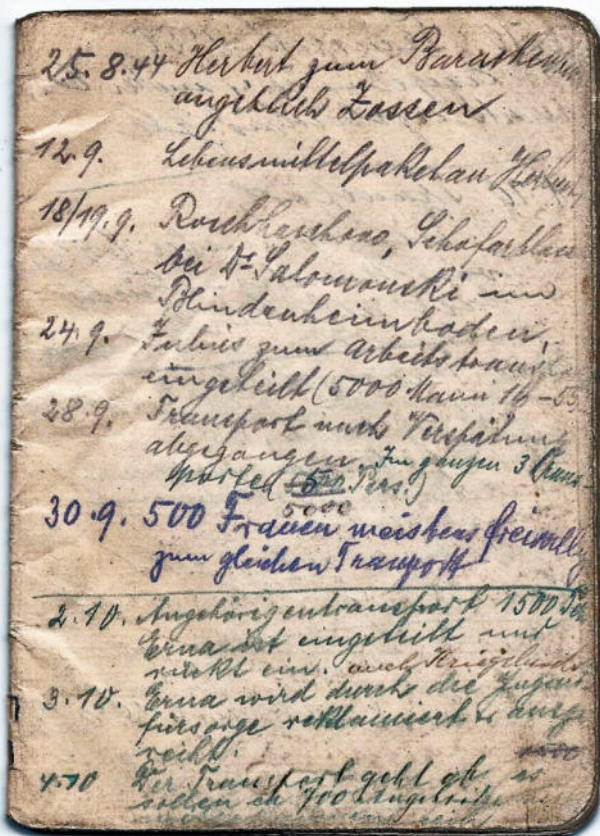 25. 8. 44 Herbert zum
angeblich Zossen
12. 9. Lebensmittelpaket an
18/19. 9. Roschhaschono,
bei Dr Salomonski im
Blindenheimboden,
24. 9. Julius zum Arbeitstransp
eingeteilt (5000 Mann 16-55
28. 9. Transport nach Verspätung
abgegangen. Im ganzen 3 Trans-
porte ( Pers.)
5000
30. 9. 500 Frauen meistens freiwillig
zum gleichen Transport
2. 10. Angehörigentransport 1500
Erna ist eingeteilt und
rückt ein. auch
3. 10. Erna wird durch die Jugend
fürsorge reklamiert &
reiht.
4. 10 Der Transport geht ab, es
sollen ca 700